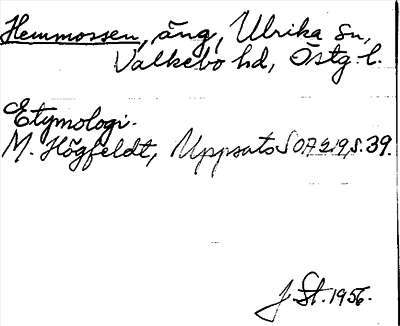 Hemmossen, äng, Ulrika sn,
Valkebo hd, Östg l.
Etymologi.
M. Högfeldt, Uppsats SOA 219, s. 39.
J. St. 1956.